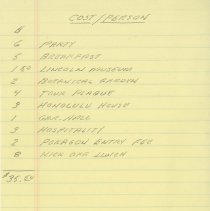 COST/PERSON
$
6 PARTY
5 BREAKFAST
1 50 LINCOLN MUSEUM
2 BOTANICAL GARDEN
4 TOUR PLAQUE
3 HONOLULU HOUSE
1 GAR HALL
3 HOSPITALITY
2 PARAGON ENTRY FEE
8 KICK OFF LUNCH
$35.50